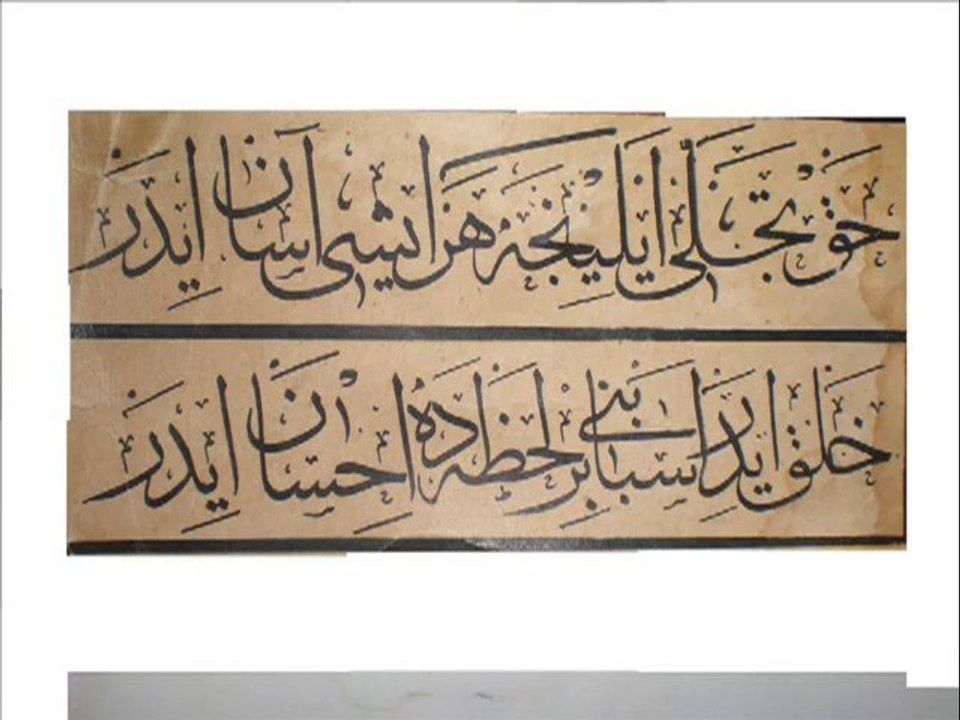 حق تجلى ايلينجه هر ايشى اسان ايدر
خلق ايدر اسبابنى بر لحظه ده احسان ايدر